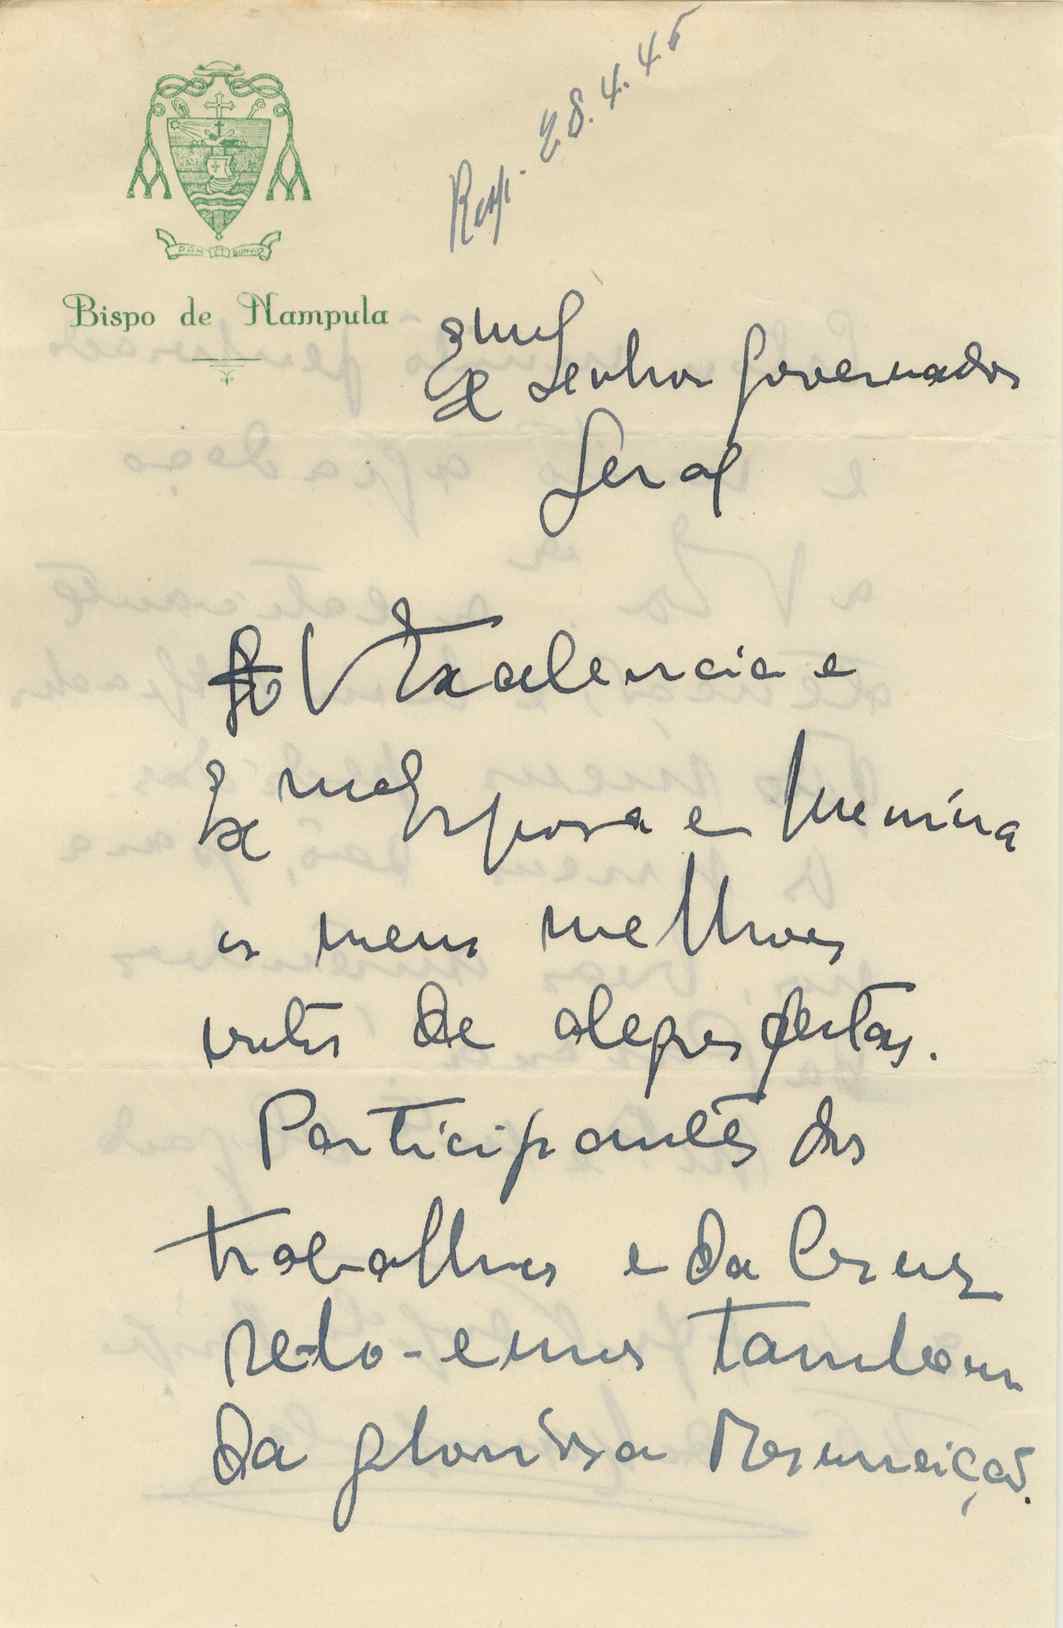 Resp. 28.4.45
Bispo de Nampula
Exmo Senhor Governador
Geral
A V Excelencia e
Exma Esposa e Menina
os meus melhores
votos de alegres festas.
Participantes dos
trabalhos e da Cruz
sê-lo-emos tambem
da gloriósa Resurreição.